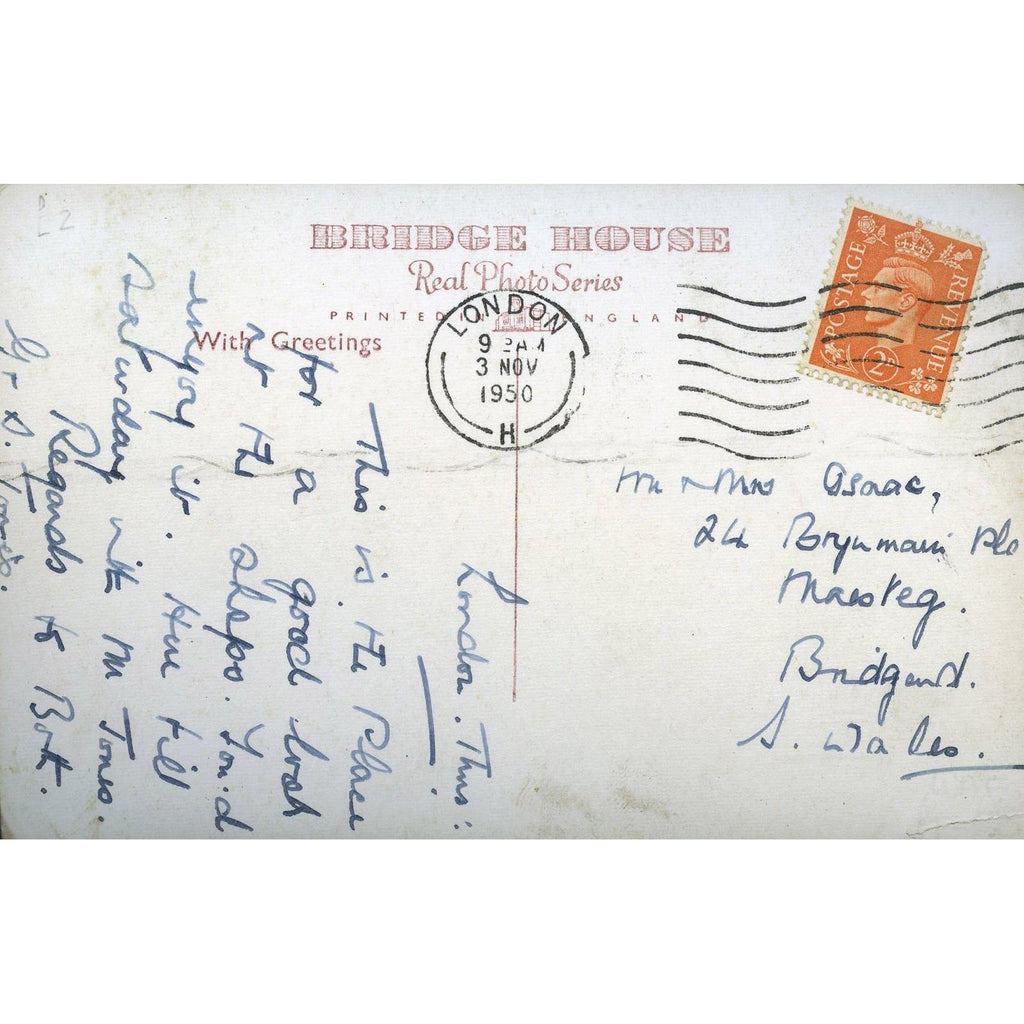 D
£2
BRIDGE HOUSE
Real Photo Series
PRINTED IN ENGLAND
With Greetings
LONDON
9 AM
3 NOV
1950
H
POSTAGE
REVENUE
2D
London. Thurs:
This is the Place
for a good look
at the shops. You'd
enjoy it. Here till
Saturday with Mr Jones.
Regards to Both.
Mr & Mrs Isaac,
24 Brynmawr Plc
Maesteg.
Bridgend.
S. Wales.